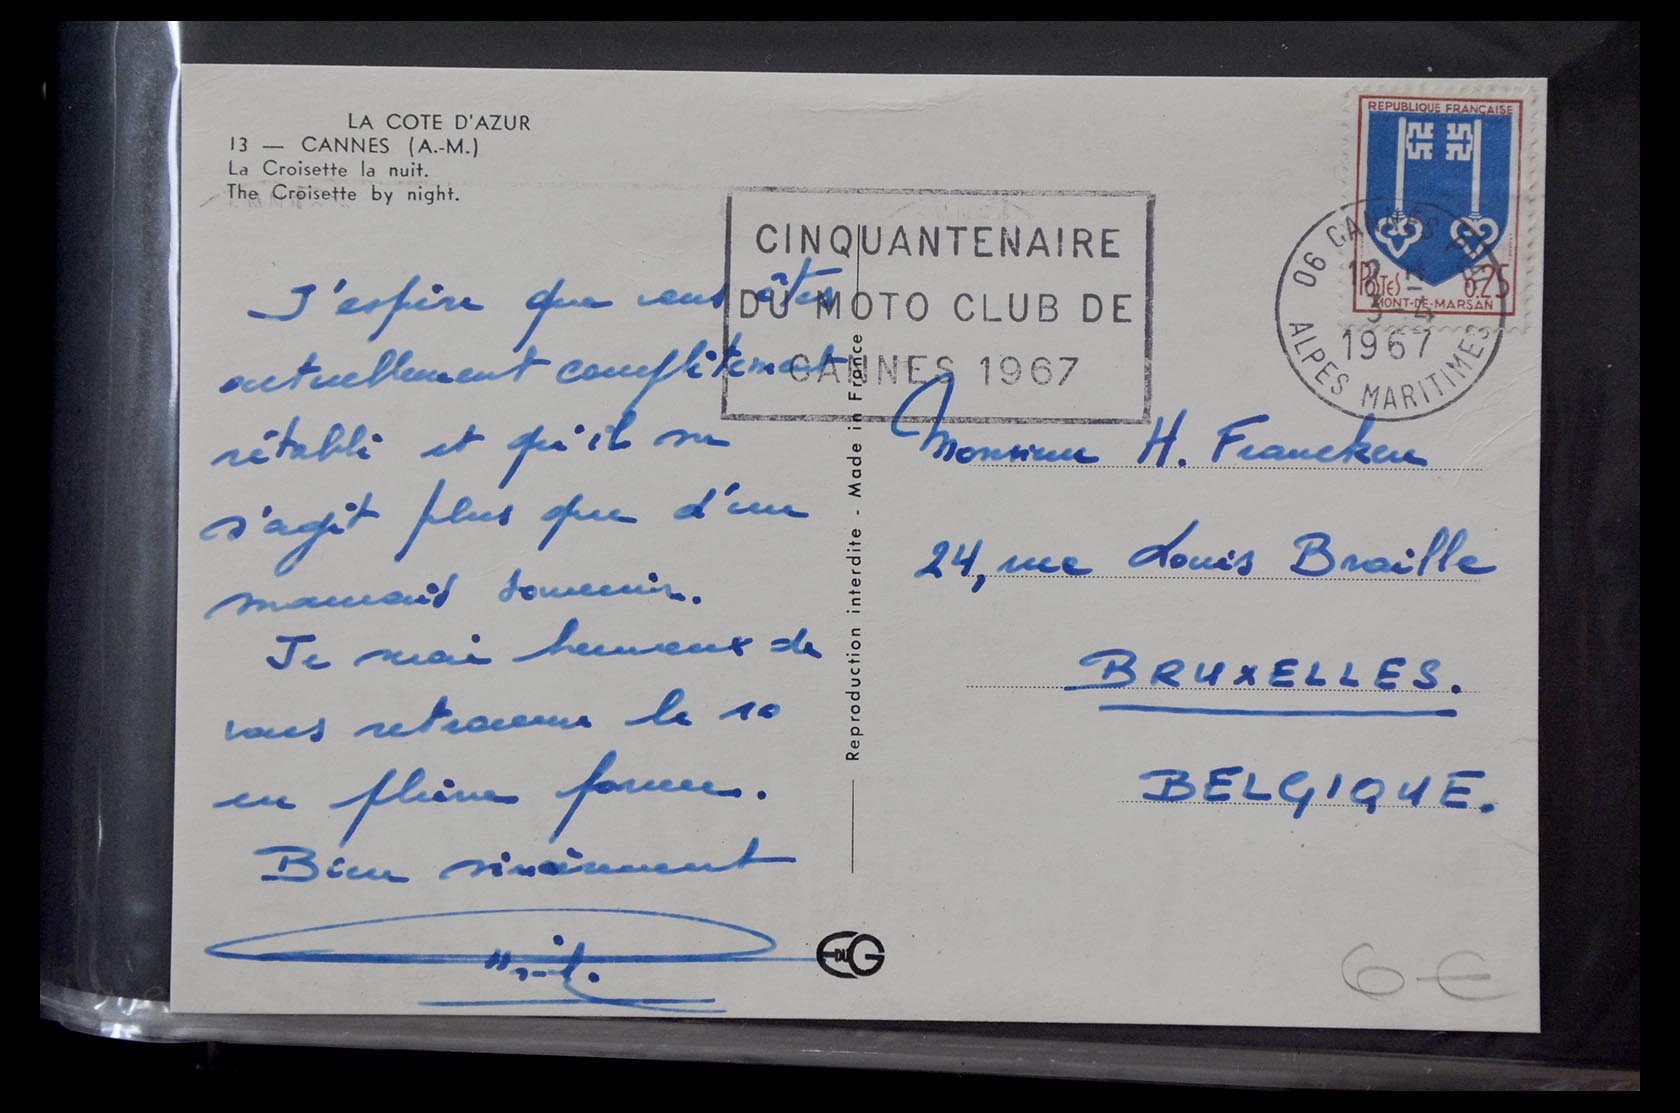 LA COTE D'AZUR
13 — CANNES (A.-M.)
La Croisette la nuit.
The Croisette by night.
J'espère que vous êtes
actuellement complètement
rétabli et qu'il ne
s'agit plus que d'un
mauvais souvenir.
Je serai heureux de
vous retrouver le 10
en pleine forme.
Bien sincèrement
Reproduction interdite - Made in France
EDUG
CINQUANTENAIRE
DU MOTO CLUB DE
CANNES 1967
REPUBLIQUE FRANÇAISE
POSTES 0.25
MONT-DE-MARSAN
06 CANNES
3-4
1967
ALPES MARITIMES
Monsieur H. Francken
24, rue Louis Braille
BRUXELLES.
BELGIQUE.
6 €